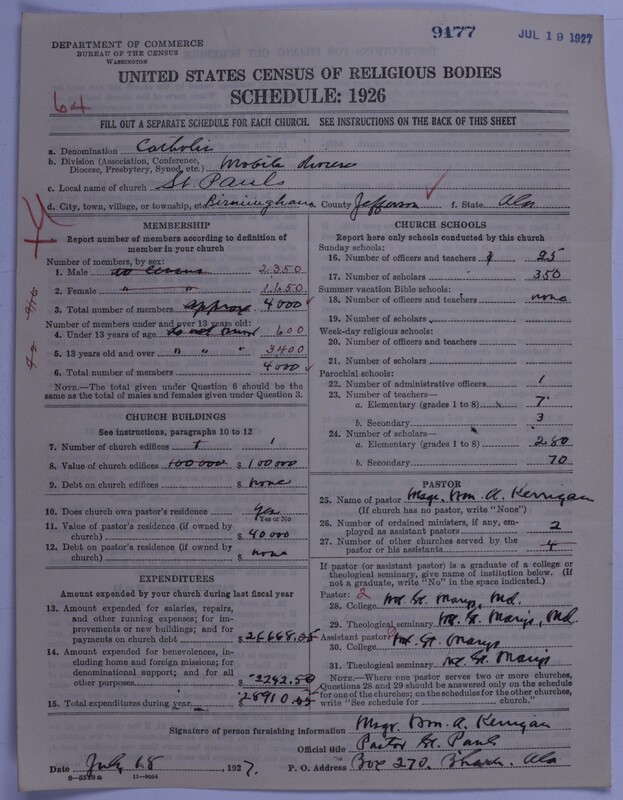 9177
JUL 19 1927
DEPARTMENT OF COMMERCE
BUREAU OF THE CENSUS
WASHINGTON
UNITED STATES CENSUS OF RELIGIOUS BODIES
SCHEDULE: 1926
64
FILL OUT A SEPARATE SCHEDULE FOR EACH CHURCH. SEE INSTRUCTIONS ON THE BACK OF THIS SHEET
a. Denomination Catholic
b. Division (Association, Conference, Diocese, Presbytery, Synod, etc.) Mobile diocese
c. Local name of church St. Pauls
d. City, town, village, or township, etc. Birmingham County Jefferson f. State Ala
MEMBERSHIP
Report number of members according to definition of
member in your church
Number of members, by sex:
1. Male no census 2,350
2. Female " " 1,650
3. Total number of members approx 4000
Number of members under and over 13 years old:
4. Under 13 years of age do not 600
5. 13 years old and over " " " 3400
6. Total number of members 4000
NOTE.—The total given under Question 6 should be the
same as the total of males and females given under Question 3.
CHURCH BUILDINGS
See instructions, paragraphs 10 to 12
7. Number of church edifices 1 1
8. Value of church edifices 100000 $ 100000
9. Debt on church edifices $ none
10. Does church own pastor's residence yes
(Yes or No)
11. Value of pastor's residence (if owned by
church) $ 40000
12. Debt on pastor's residence (if owned by
church) $ none
EXPENDITURES
Amount expended by your church during last fiscal year
13. Amount expended for salaries, repairs,
and other running expenses; for im-
provements or new buildings; and for
payments on church debt $ 26668.05
14. Amount expended for benevolences,
including home and foreign missions; for
denominational support; and for all
other purposes $ 2242.50
15. Total expenditures during year $ 28910.55
CHURCH SCHOOLS
Report here only schools conducted by this church
Sunday schools:
16. Number of officers and teachers 25
17. Number of scholars 350
Summer vacation Bible schools:
18. Number of officers and teachers none
19. Number of scholars
Week-day religious schools:
20. Number of officers and teachers
21. Number of scholars
Parochial schools:
22. Number of administrative officers 1
23. Number of teachers—
a. Elementary (grades 1 to 8) 7
b. Secondary 3
24. Number of scholars—
a. Elementary (grades 1 to 8) 280
b. Secondary 70
PASTOR
25. Name of pastor Msgr. Wm. A. Kerrigan
(If church has no pastor, write "None")
26. Number of ordained ministers, if any, em-
ployed as assistant pastors 2
27. Number of other churches served by the
pastor or his assistants 4
If pastor (or assistant pastor) is a graduate of a college or
theological seminary, give name of institution below. (If
not a graduate, write "No" in the space indicated.)
Pastor: 2
28. College Mt. St. Marys, Md.
29. Theological seminary Mt. St. Marys, Md.
Assistant pastor:
30. College Mt. St. Marys
31. Theological seminary Mt. St. Marys
NOTE.—Where one pastor serves two or more churches,
Questions 28 and 29 should be answered only on the schedule
for one of the churches; on the schedules for the other churches,
write "See schedule for church."
Signature of person furnishing information Msgr. Wm. A. Kerrigan
Official title Pastor St. Pauls
Date July 18, 1927. P. O. Address Box 270. Bham. Ala